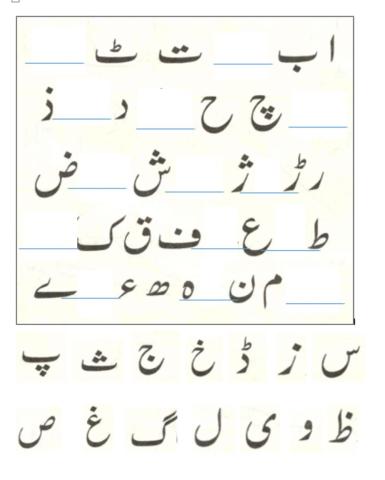 ا ب ____ ت ٹ ____
____ چ ح ____ د ____ ذ
ر ڑ ____ ژ ____ ش ____ ض
ط ____ ع ____ ف ق ک ____
____ م ن ____ ہ ھ ء ____ ے
س ز ڈ خ ج ث پ
ظ و ی ل گ غ ص